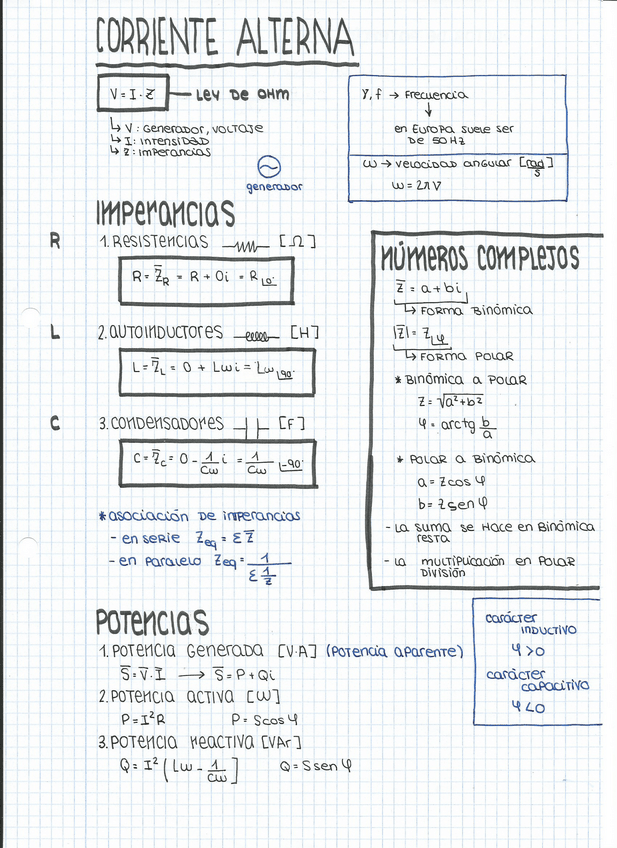 CORRIENTE ALTERNA
V = I · Z — LEY DE OHM
↳ V: Generador, VOLTAJE
↳ I: INTENSIDAD
↳ Z: IMPERANCIAS
generador
γ, f → Frecuencia
↓
en EUROPA SUELE SER
DE 50 HZ
ω → VELOCIDAD ANGULAR [rad/s]
ω = 2πν
IMPERANCIAS
R
1. RESISTENCIAS [Ω]
R = Z̅_R = R + 0i = R|0°
L
2. AUTOINDUCTORES [H]
L = Z̅_L = 0 + Lωi = Lω|90°
C
3. CONDENSADORES [F]
C = Z̅_C = 0 - 1/Cω i = 1/Cω |-90°
* ASOCIACIÓN DE IMPERANCIAS
- en serie Zeq = Σ Z̅
- en PARALELO Zeq = 1/Σ 1/Z
NÚMEROS COMPLEJOS
Z̅ = a + bi
↳ FORMA BINÓMICA
|Z̅| = Z|φ
↳ FORMA POLAR
* BINÓMICA A POLAR
Z = √a²+b²
φ = arctg b/a
* POLAR A BINÓMICA
a = Z cos φ
b = Z sen φ
- LA SUMA SE HACE EN BINÓMICA
RESTA
- LA MULTIPLICACIÓN EN POLAR
DIVISIÓN
POTENCIAS
1. POTENCIA GENERADA [V·A] (POTENCIA APARENTE)
S̅ = V̅ · I̅ → S̅ = P + Qi
2. POTENCIA ACTIVA [W]
P = I²R P = S cos φ
3. POTENCIA REACTIVA [VAr]
Q = I² (Lω - 1/Cω] Q = S sen φ
CARÁCTER
INDUCTIVO
φ > 0
CARÁCTER
CAPACITIVO
φ < 0